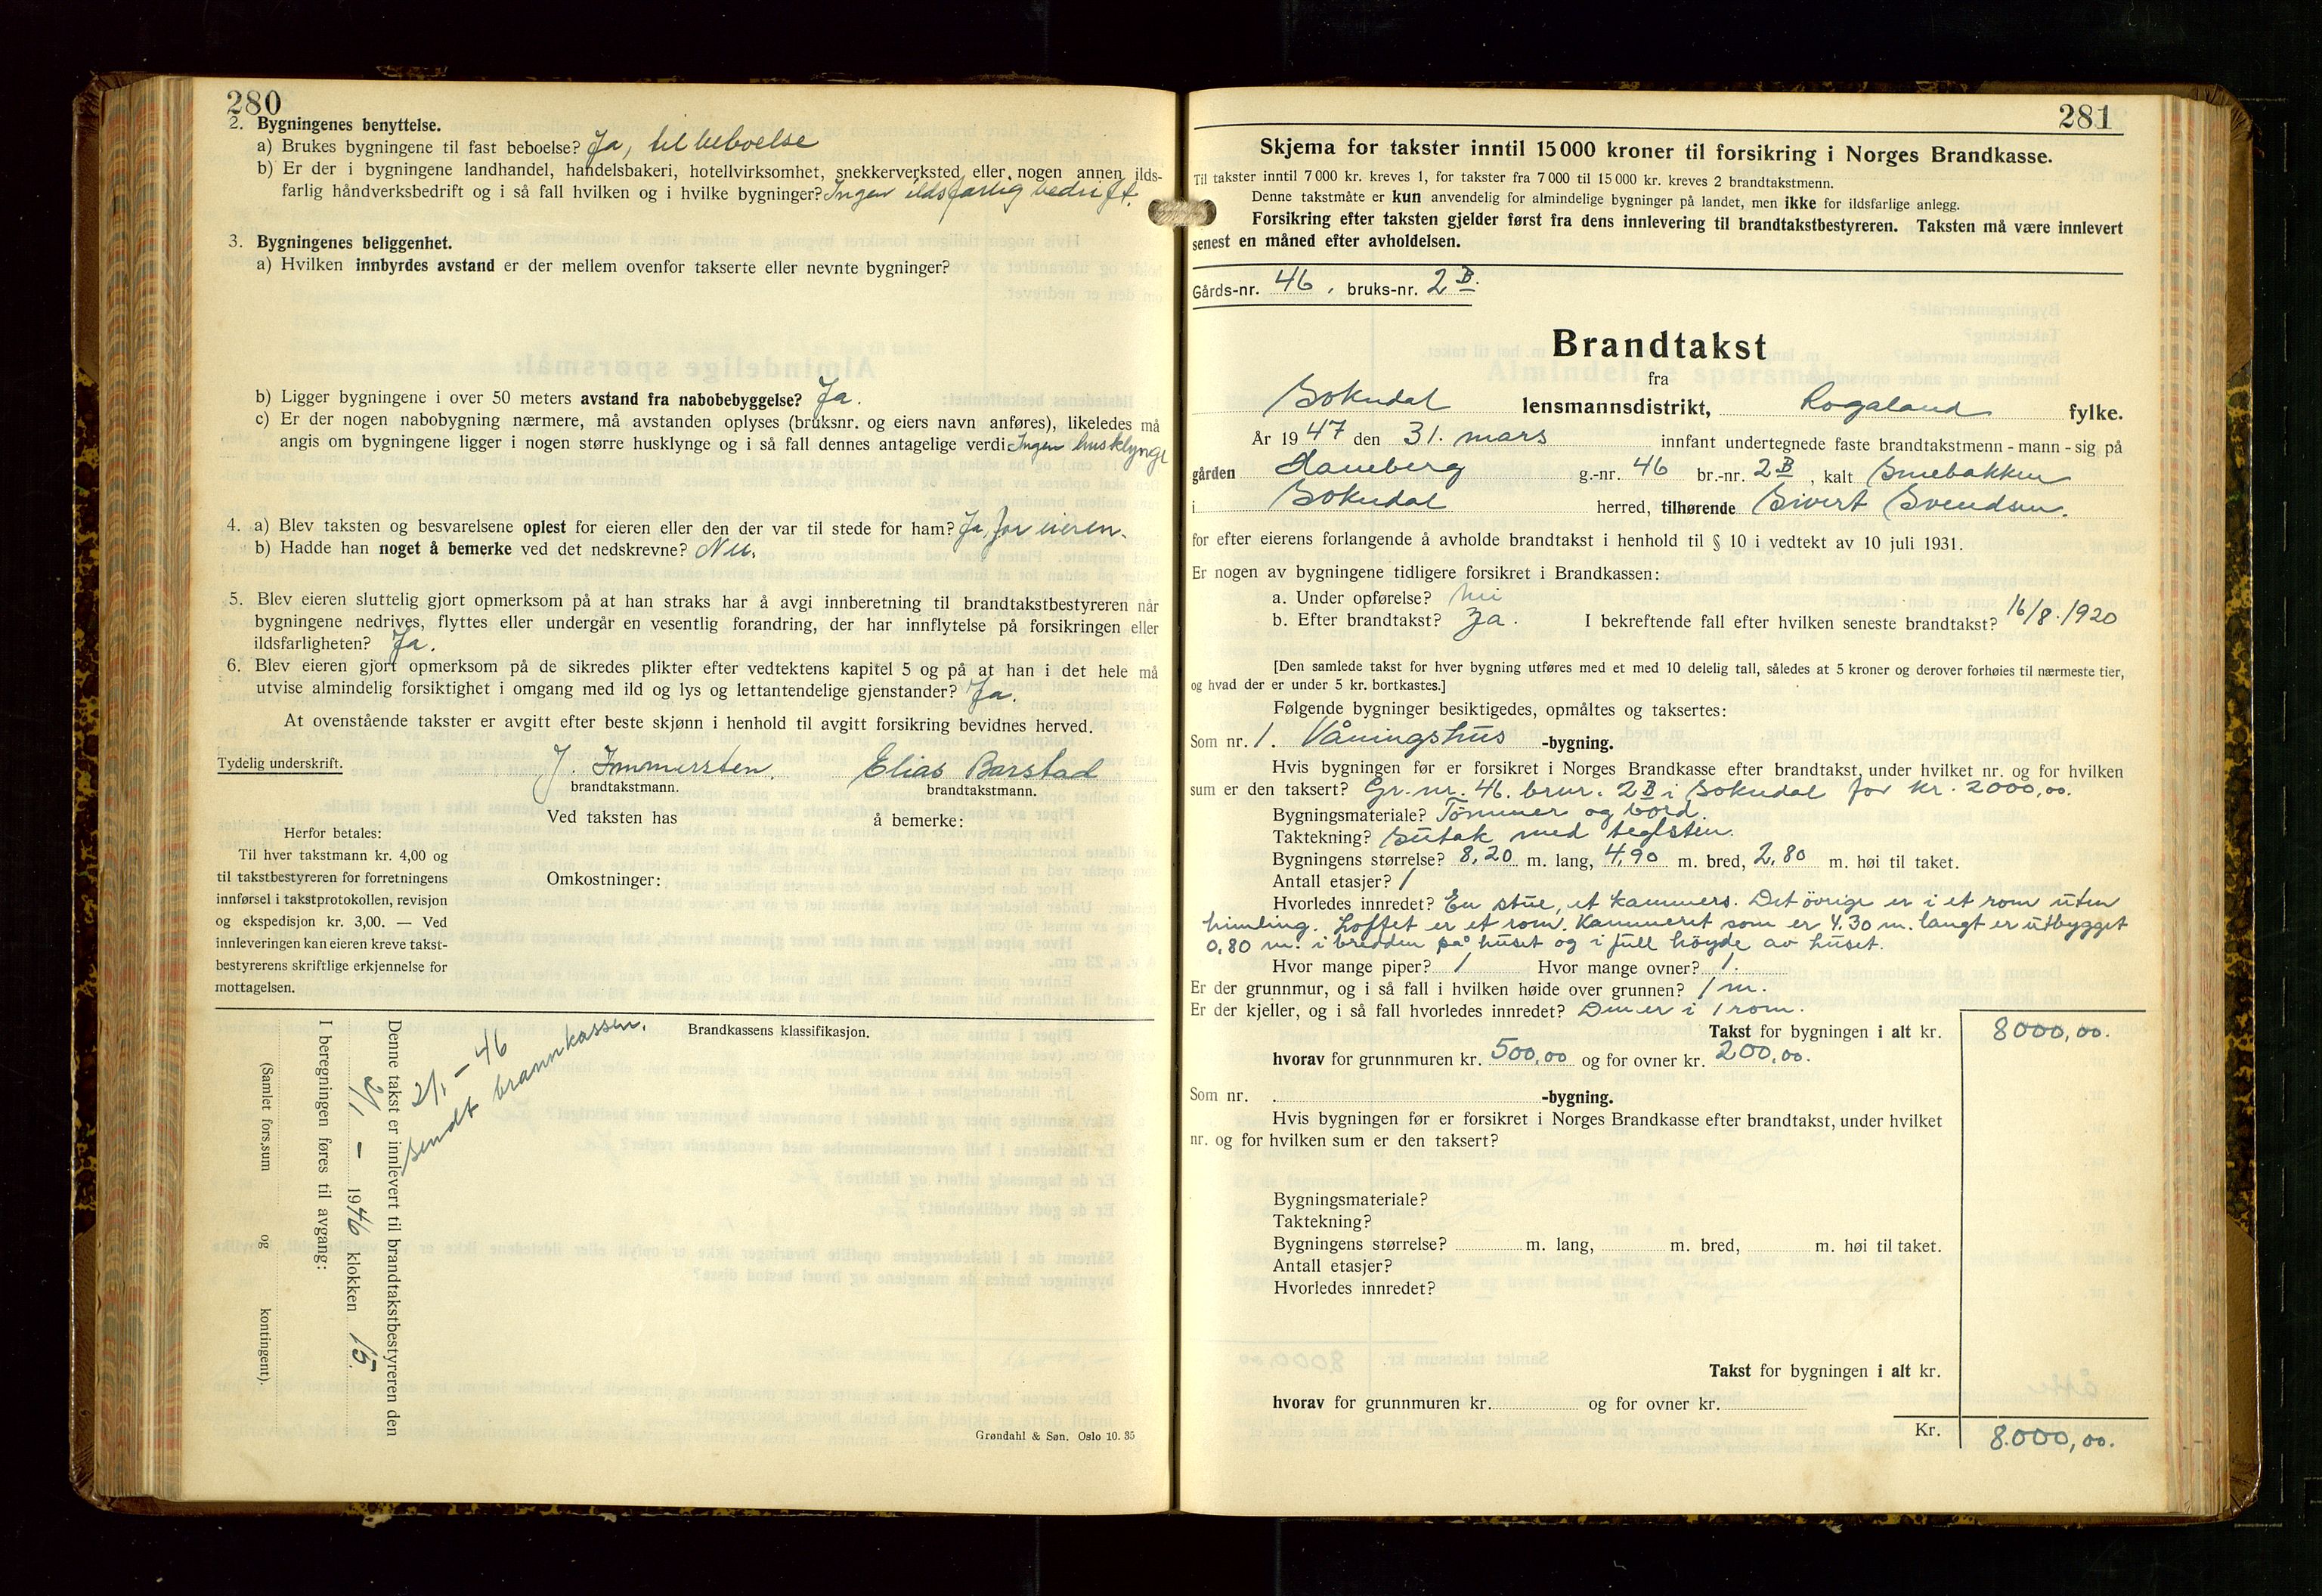 280
2. Bygningenes benyttelse.
a) Brukes bygningene til fast beboelse? Ja, til beboelse
b) Er der i bygningene landhandel, handelsbakeri, hotellvirksomhet, snekkerverksted eller nogen annen ilds-
farlig håndverksbedrift og i så fall hvilken og i hvilke bygninger? Ingen ildsfarlig bedrift.
3. Bygningenes beliggenhet.
a) Hvilken innbyrdes avstand er der mellem ovenfor takserte eller nevnte bygninger?
b) Ligger bygningene i over 50 meters avstand fra nabobebyggelse? Ja.
c) Er der nogen nabobygning nærmere, må avstanden oplyses (bruksnr. og eiers navn anføres), likeledes må
angis om bygningene ligger i nogen større husklynge og i så fall dennes antagelige verdi Ingen husklynge
4. a) Blev taksten og besvarelsene oplest for eieren eller den der var til stede for ham? Ja, for eieren.
b) Hadde han noget å bemerke ved det nedskrevne? Nei.
5. Blev eieren sluttelig gjort opmerksom på at han straks har å avgi innberetning til brandtakstbestyreren når
bygningene nedrives, flyttes eller undergår en vesentlig forandring, der har innflytelse på forsikringen eller
ildsfarligheten? Ja.
6. Blev eieren gjort opmerksom på de sikredes plikter efter vedtektens kapitel 5 og på at han i det hele må
utvise almindelig forsiktighet i omgang med ild og lys og lettantendelige gjenstander? Ja.
At ovenstående takster er avgitt efter beste skjønn i henhold til avgitt forsikring bevidnes herved.
Tydelig underskrift. J. Immersten. Elias Barstad
brandtakstmann. brandtakstmann.
Ved taksten has å bemerke:
Herfor betales:
Til hver takstmann kr. 4,00 og
til takstbestyreren for forretningens
innførsel i takstprotokollen, revisjon
og ekspedisjon kr. 3,00. — Ved
innleveringen kan eieren kreve takst-
bestyrerens skriftlige erkjennelse for
mottagelsen.
Omkostninger:
Brandkassens klassifikasjon.
Denne takst er innlevert til brandtakstbestyreren den
2/1 – 1946 klokken 15.
I beregningen føres til avgang:
(Samlet fors.sum og kontingent).
2/1 – 46
sendt brannkassen.
Grøndahl & Søn, Oslo 10. 35
281
Skjema for takster inntil 15 000 kroner til forsikring i Norges Brandkasse.
Til takster inntil 7 000 kr. kreves 1, for takster fra 7 000 til 15 000 kr. kreves 2 brandtakstmenn.
Denne takstmåte er kun anvendelig for almindelige bygninger på landet, men ikke for ildsfarlige anlegg.
Forsikring efter taksten gjelder først fra dens innlevering til brandtakstbestyreren. Taksten må være innlevert
senest en måned efter avholdelsen.
Gårds-nr. 46, bruks-nr. 2 B.
Brandtakst
fra
Sokndal lensmannsdistrikt, Rogaland fylke.
År 1947 den 31. mars innfant undertegnede faste brandtakstmenn - mann - sig på
gården Haneberg g.-nr. 46 br.-nr. 2 B, kalt Smebakken
i Sokndal herred, tilhørende Sivert Svendsen.
for efter eierens forlangende å avholde brandtakst i henhold til § 10 i vedtekt av 10 juli 1931.
Er nogen av bygningene tidligere forsikret i Brandkassen:
a. Under opførelse? Nei
b. Efter brandtakst? Ja. I bekreftende fall efter hvilken seneste brandtakst? 16/8. 1920
[Den samlede takst for hver bygning utføres med et med 10 delelig tall, således at 5 kroner og derover forhøies til nærmeste tier,
og hvad der er under 5 kr. bortkastes.]
Følgende bygninger besiktigedes, opmåltes og taksertes:
Som nr. 1. Våningshus -bygning.
Hvis bygningen før er forsikret i Norges Brandkasse efter brandtakst, under hvilket nr. og for hvilken
sum er den taksert? Gr. nr. 46. brnr. 2 B i Sokndal for kr. 2000,00.
Bygningsmateriale? Tömmer og bord.
Taktekning? Sutak med teglsten.
Bygningens størrelse? 8,20 m. lang, 4,90 m. bred, 2,80 m. høi til taket.
Antall etasjer? 1
Hvorledes innredet? En stue, et kammers. Det övrige er i et rom uten
himling. Loftet er et rom. Kammeret som er 4.30 m. langt er utbygget
0,80 m. i bredden på huset og i full höyde av huset.
Hvor mange piper? 1 Hvor mange ovner? 1.
Er der grunnmur, og i så fall i hvilken høide over grunnen? 1 m.
Er der kjeller, og i så fall hvorledes innredet? Den er i 1 rom.
Takst for bygningen i alt kr. 8000,00.
hvorav for grunnmuren kr. 500,00 og for ovner kr. 200,00.
Som nr. -bygning.
Hvis bygningen før er forsikret i Norges Brandkasse efter brandtakst, under hvilket
nr. og for hvilken sum er den taksert?
Bygningsmateriale?
Taktekning?
Bygningens størrelse? m. lang, m. bred, m. høi til taket.
Antall etasjer?
Hvorledes innredet?
Takst for bygningen i alt kr.
hvorav for grunnmuren kr. og for ovner kr.
Kr. 8.000,00.